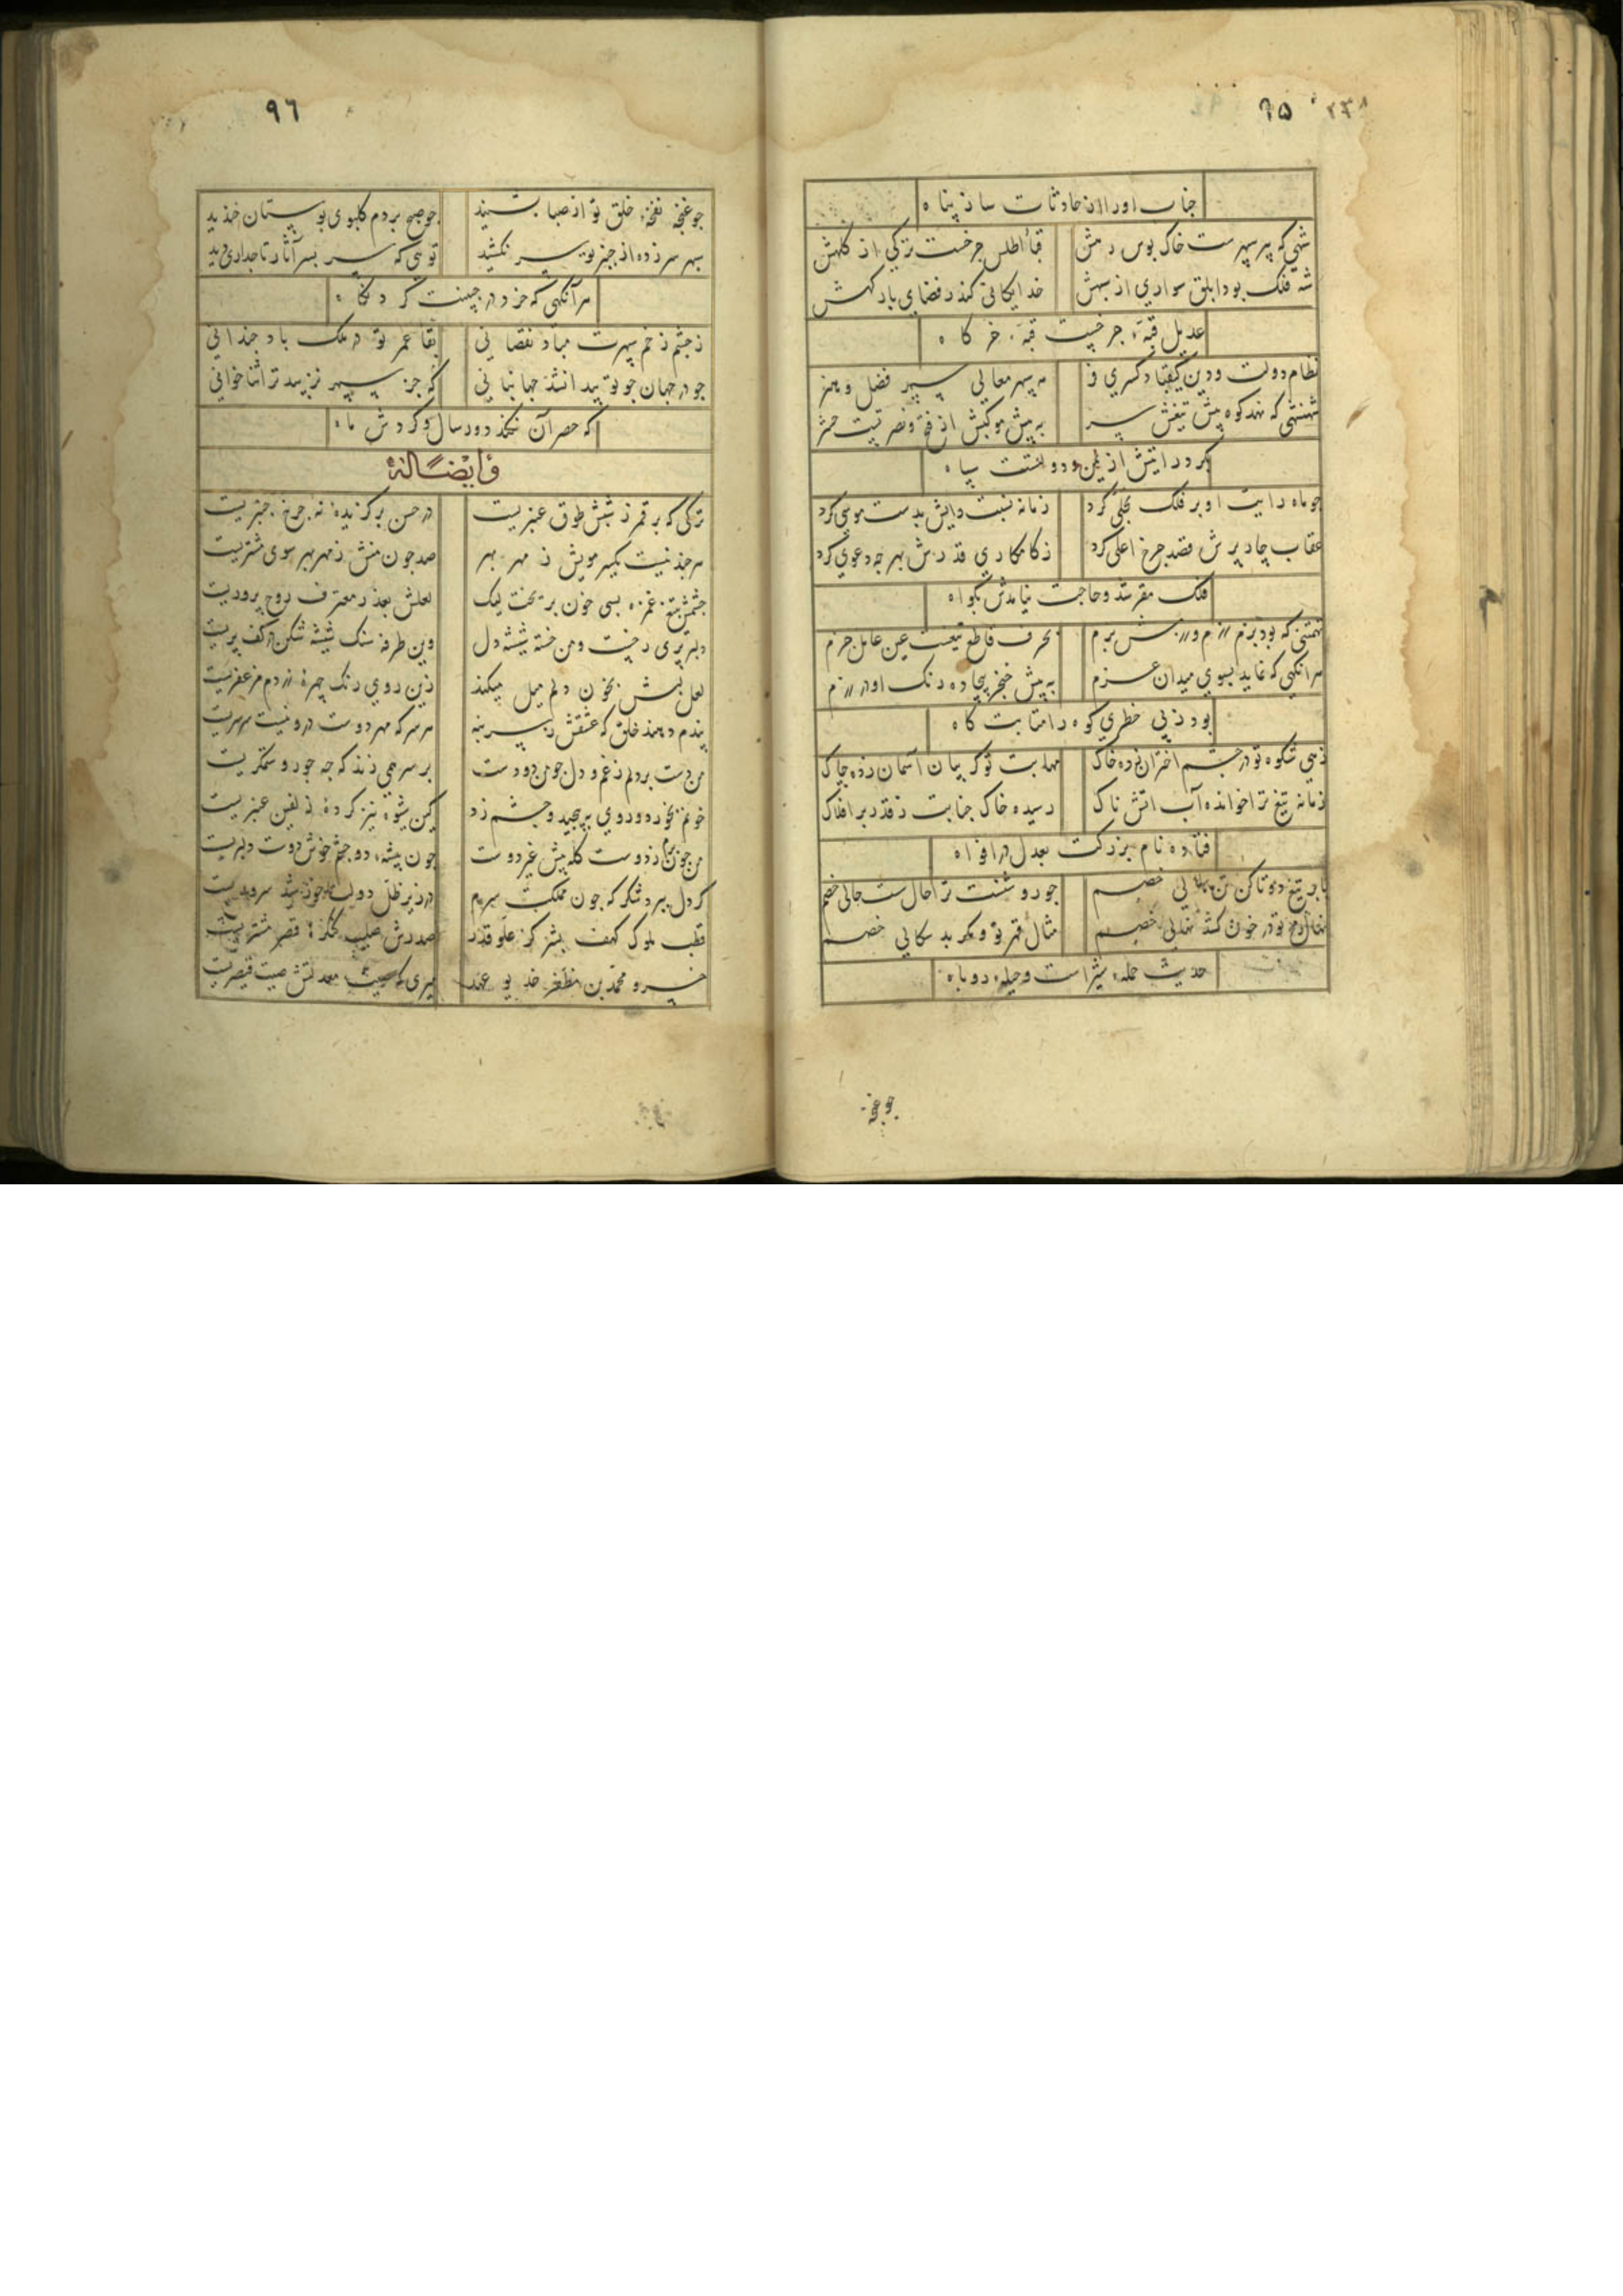 ٩٥
جناب اورا از حادثات ساز پناه
شهی که پیر سپهرست خاک بوس درش
قبا اطلس چرخست ترکی از کلهش
شه فلک بود ابلق سواری از سپهش
عدیل قبهٔ چرخیست قبهٔ خرکاه
نظام دولت و دین کیقباد کسری فر
مه سپهر معالی سپهر فضل و هنر
شهنشهی که نهد کوه پیش تیغش سپر
به پیش موکبش از فتح و نصرتست حشر
چو ماه رایت او بر فلک تجلی کرد
زمانه نسبت رایش بدست موسی کرد
عقاب چار پرش قصد چرخ اعلی کرد
ز کامکاری قدرش بهر چه دعوی کرد
فلک مقر شد و حاجت نیامدش بکواه
بحرف قاطع تیغت عین عامل جزم
هر انکهی که نماید بسوی میدان عزم
به پیش خنجر بیجاده رنک او در رزم
بود ز بی خطری کوه را مثابت کاه
زهی شکوه تو در چشم اختران زده خاک
مهابت تو کریبان آسمان زده چاک
زمانه تیغ ترا خوانده آب اتش ناک
رسیده خاک جنابت ز قدر بر افلاک
فتاده نام بزرکت بعدل در افواه
چو روشنست ترا حال سست حالی خصم
مثال قهر تو و مکر بد سکالی خصم
حدیث حملهٔ شیر است و حیلهٔ روباه
چو غنچه
٩٦
چو غنچه نفخهٔ خلق تو از صبا بشنید
چو صبح بر دم کلبوی بوستان خندید
سپهر سر زده از چنبر تو سر نکشید
توئی که سر بسر آثار تاجداری دید
هر آنکهی که خرد در جبینت کرد نکاه
ز چشم زخم سپهرت مباد نقصانی
بقا عمر تو در ملک باد چندانی
چو در جهان چو تو پیدا نشد جهانبانی
که جز سپهر نزیبد ترا ثناخوانی
که حصر آن نکند دور سال و کردش ماه
وایضًا له
ترکی که بر قمر ز شبش طوق عنبریست
در حسن برکزیدهٔ نه چرخ چنبریست
هر چند نیست یکسر مویش ز مهر بهر
صد چون منش ز مهر بهر سوی مشتریست
چشمش بتیغ غمزه بسی خون بریخت لیک
لعلش بعذر معترف روح پروریست
دل بر پری رخیست و من خسته شیشه دل
وین طرفه سنک شیشه شکن در کف پریست
لعل لبش بخون دلم میل میکند
زین روی رنک چهرهٔ زردم مزعفریست
پندم دهند خلق که عشقش ز سر بنه
هر سر که مهر دوست درو نیست سرسریست
من دست بر دلم ز غم و دل چو من ز دست
بر سر همی زند که چه جور و ستمکریست
خونم بخورد و روی بپیچید و چشم زد
کین شیوه نیز کردهٔ زلفین عنبریست
چون پیشهٔ دو چشم خوش دوست دلبریست
کر دل ببرد شکر که چون مملکت بریم
در زیر ظل دولت
قطب ملوک کهف بشر کز علو قدر
خسرو محمد بن مظفر خدیو عهد
میری که صیت معدلتش صیت قیصریست